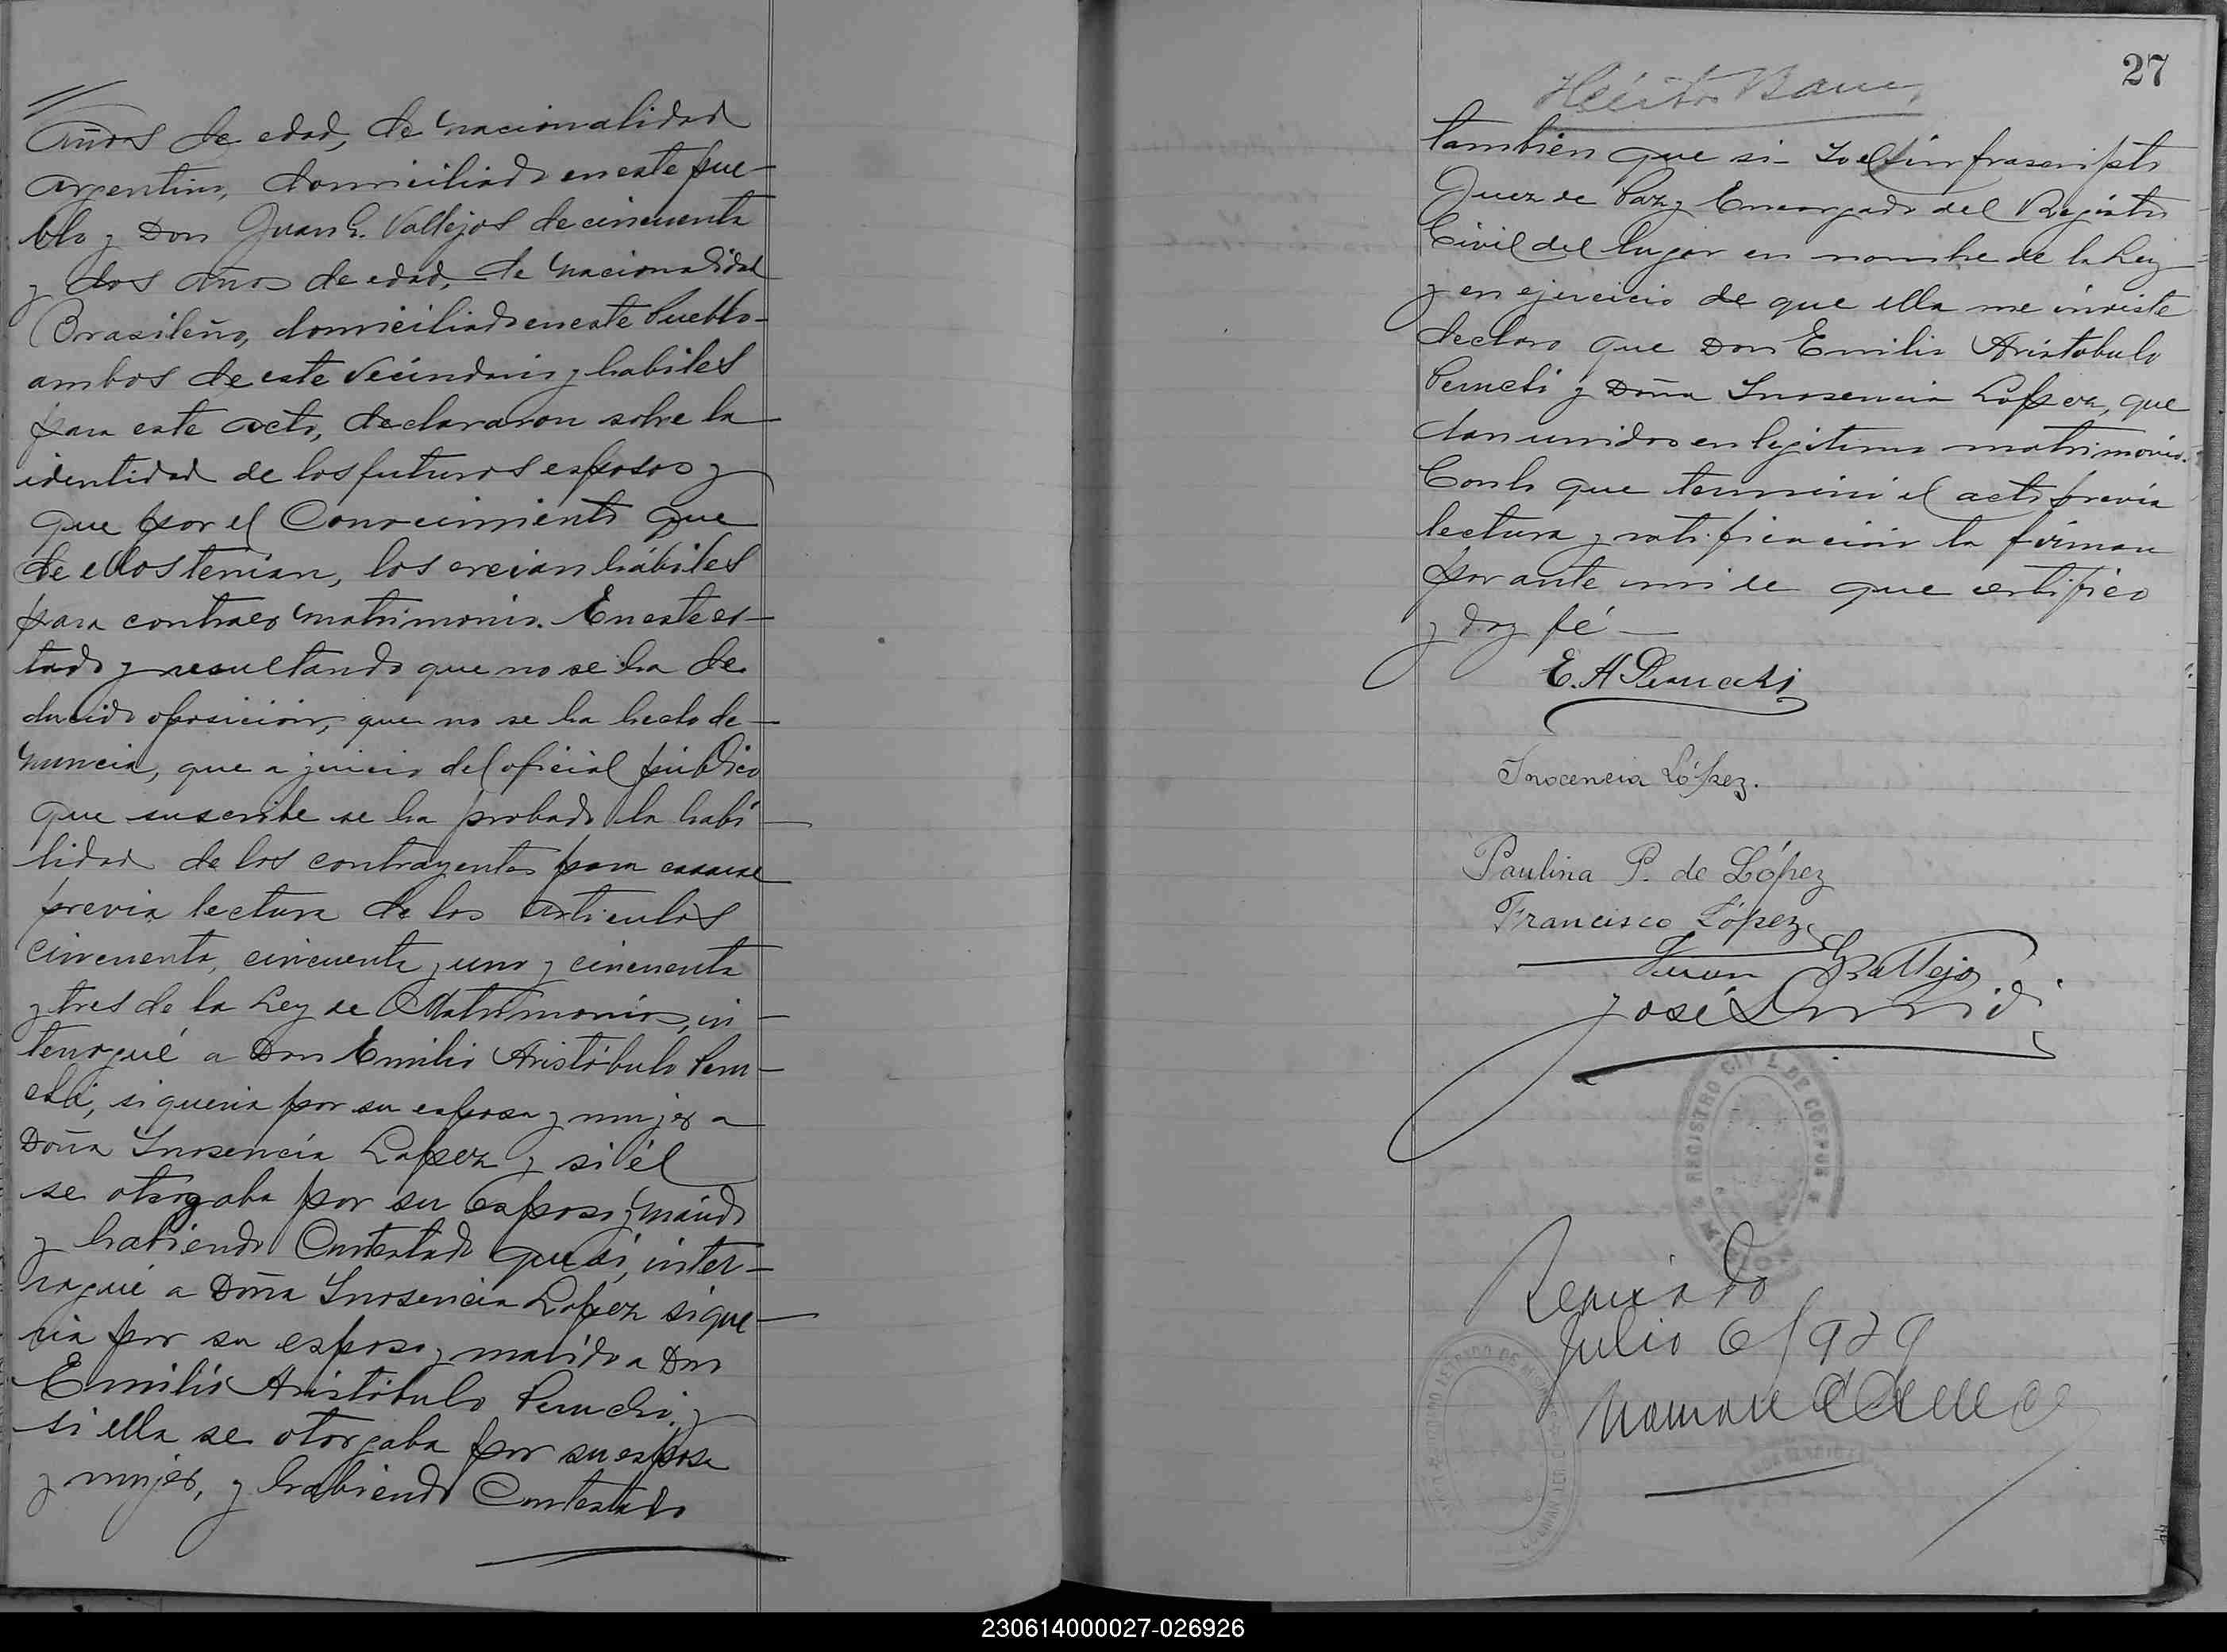 años de edad, de nacionalidad
argentino, domiciliado en este pue-
blo y Don Juan G. Vallejos de cincuenta
y dos años de edad, de nacionalidad
Brasileño, domiciliado en este Pueblo-
ambos de este vecindario y habiles
para este acto, declararon sobre la
identidad de los futuros esposos y
que por el Conocimiento que
de ellos tenian, los creian hábiles
para contraer matrimonio. En este es-
tado y resultando que no se ha de
ducido oposición, que no se ha hecho de-
nuncia, que a juicio del oficial público
que suscribe se ha probado la habi-
lidad de los contrayentes para casarse
previa lectura de los articulos
cincuenta, cincuenta y uno y cincuenta
y tres de la Ley de Matrimonio, in-
terrogué a Don Emilio Aristóbulo Peru-
chi, si queria por su esposa y mujer a
Doña Inosencia Lopez y si él
se otorgaba por su Esposo y marido
y habiendo Contestado que si, inter-
rogué a Doña Inosencia Lopez si que-
ria por su esposo y marido a Don
Emilio Aristóbulo Peruchi, y
si ella se otorgaba por su esposa
y mujer, y habiendo Contestado
27
también que si- Yo el infrascripto
Juez de Paz y Encargado del Registro
Civil del lugar en nombre de la Ley
y en ejercicio de que ella me inviste
declaro que Don Emilio Aristobulo
Peruchi y Doña Inosencia Lopez, que
dan unidos en legitimo matrimonio.
Con lo que terminó el acto previa
lectura y ratificación la firman
por ante mi de que certifico
y doy fé-
E. A Perucchi
Inocencia López.
Paulina P. de López
Francisco López
Juan G Vallejos
José
REGISTRO CIVIL DE CORPUS
Revisado
Julio 6/929
230614000027-026926